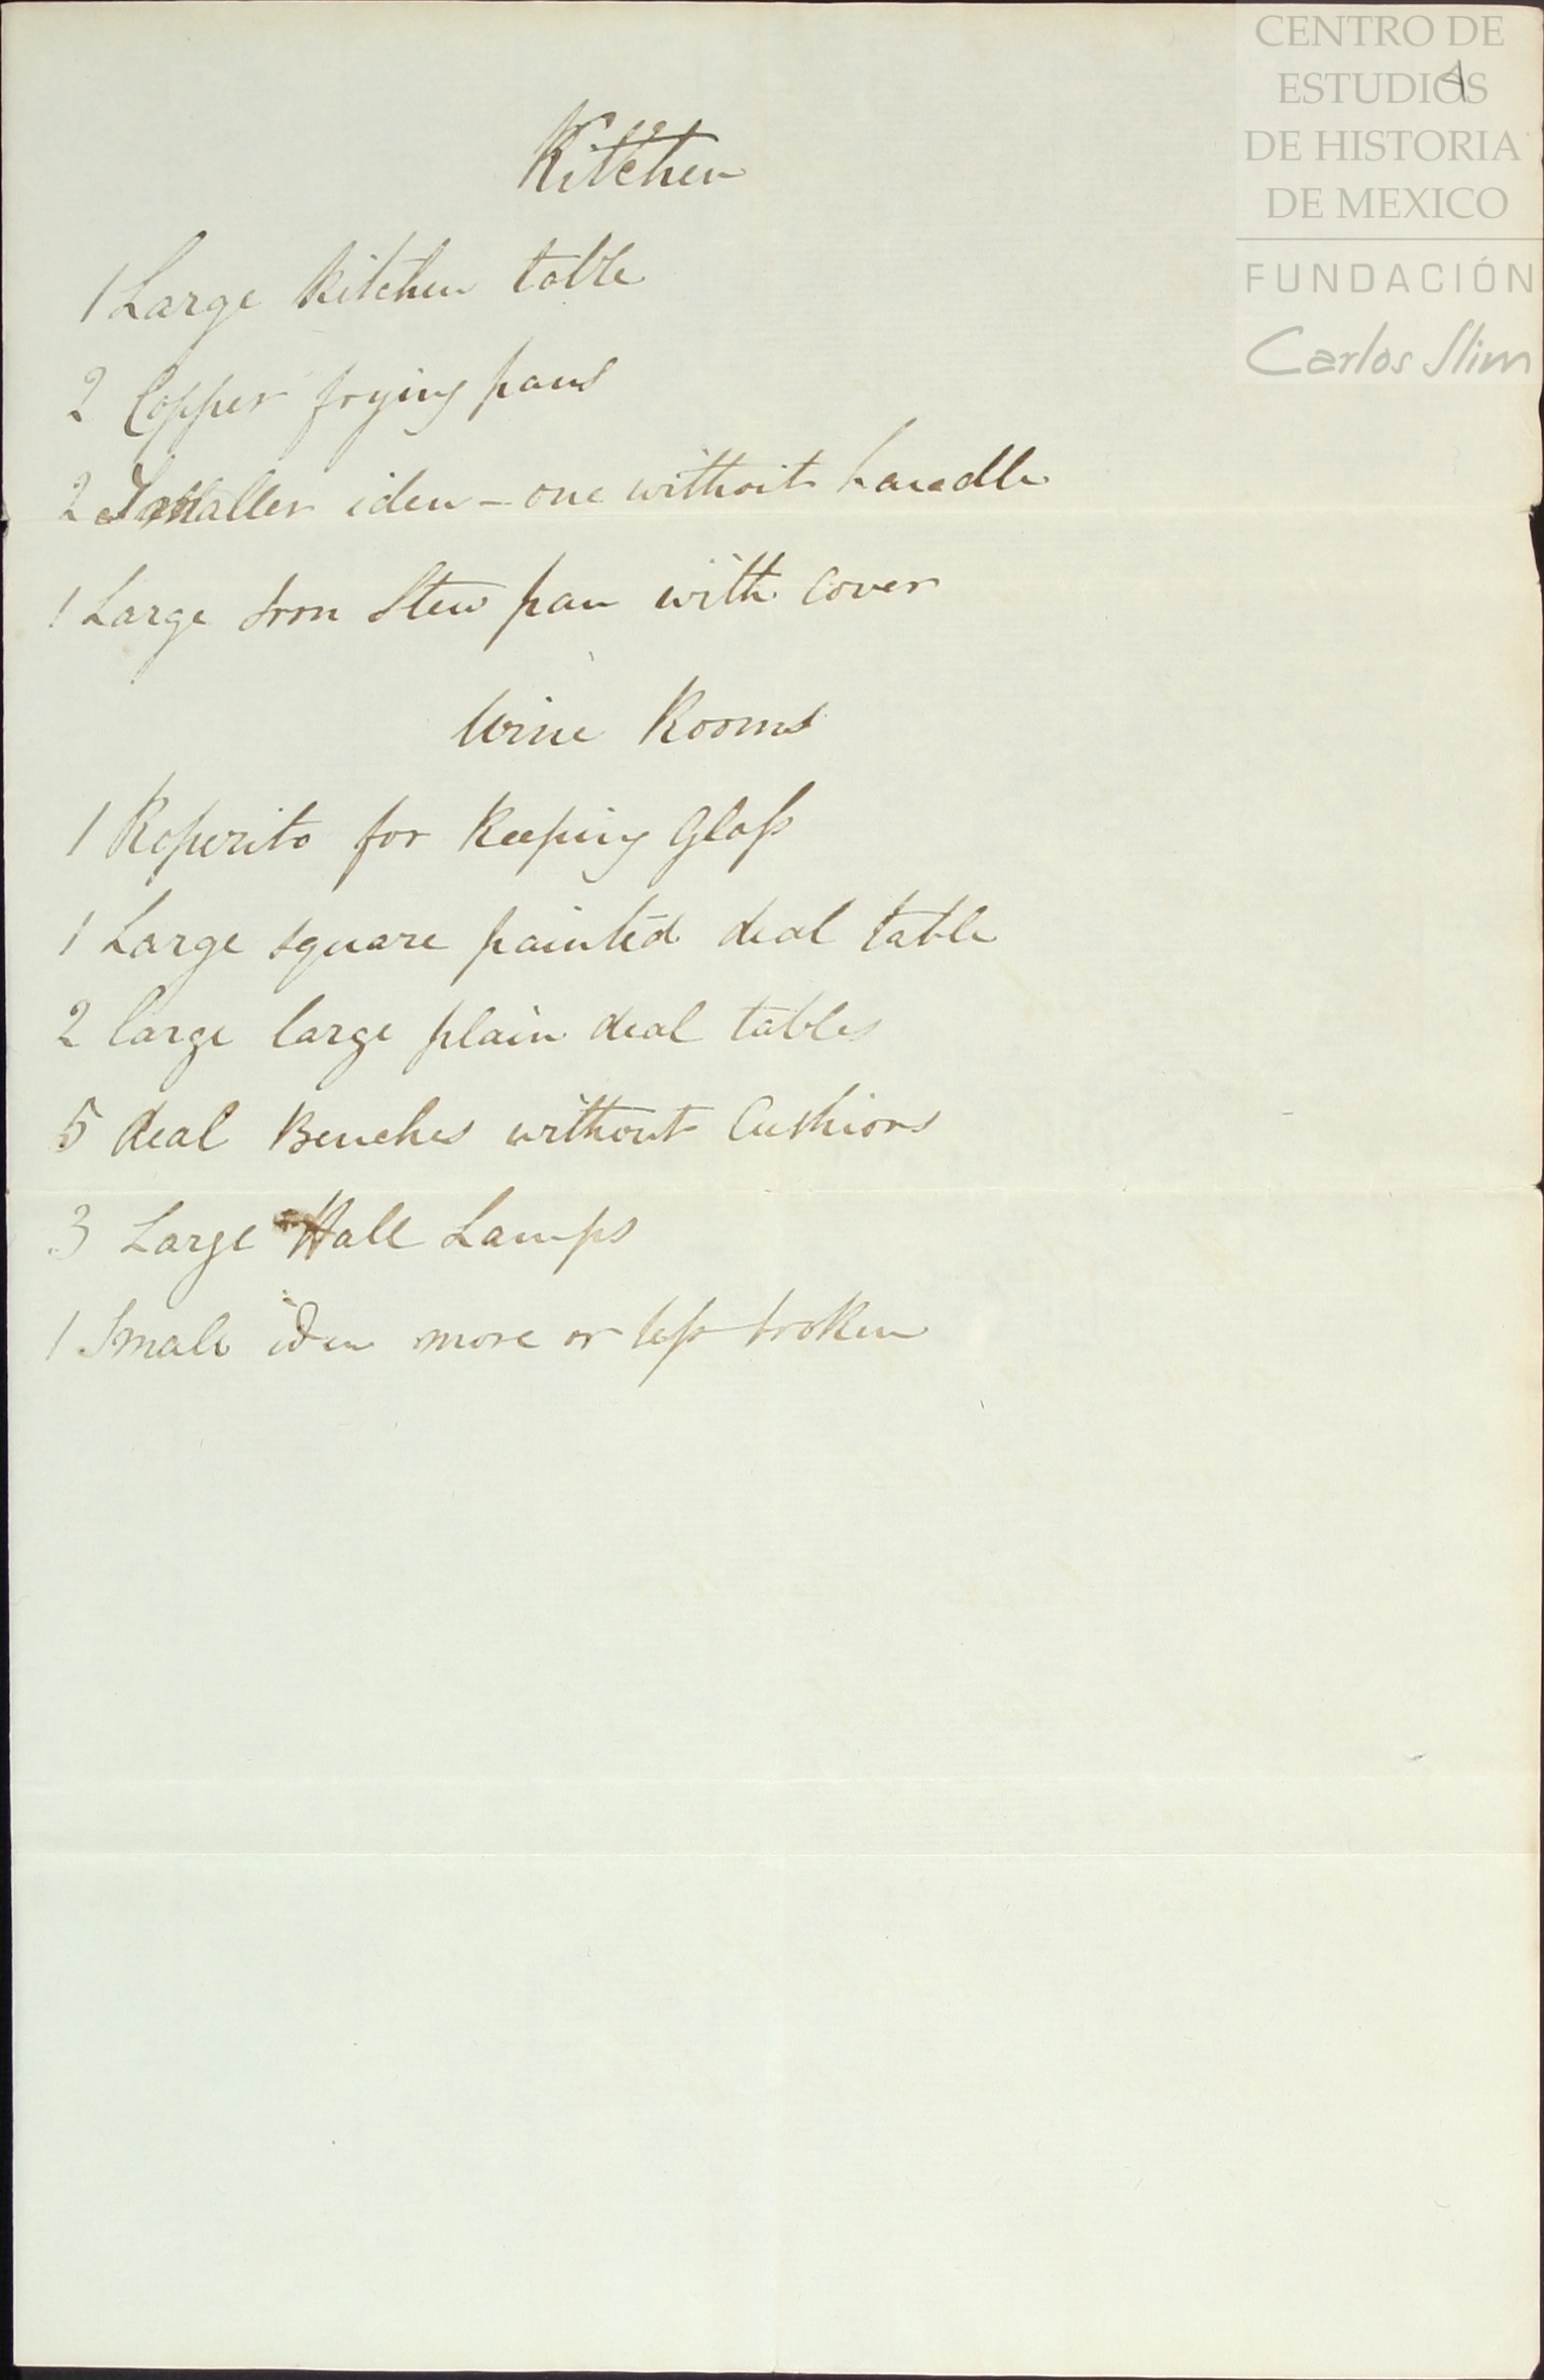 CENTRO DE
ESTUDIOS
DE HISTORIA
DE MEXICO
FUNDACIÓN
Carlos Slim
4
Kitchen
1 Large Kitchen table
2 Copper frying pans
2 Smaller idem - one without handle
1 Large Iron Stew pan with cover
Wine Rooms
1 Roperito for Keeping Glass
1 Large square painted deal table
2 large large plain deal tables
5 deal Benches without Cushions
3 Large Hall Lamps
1 Small idem more or less broken